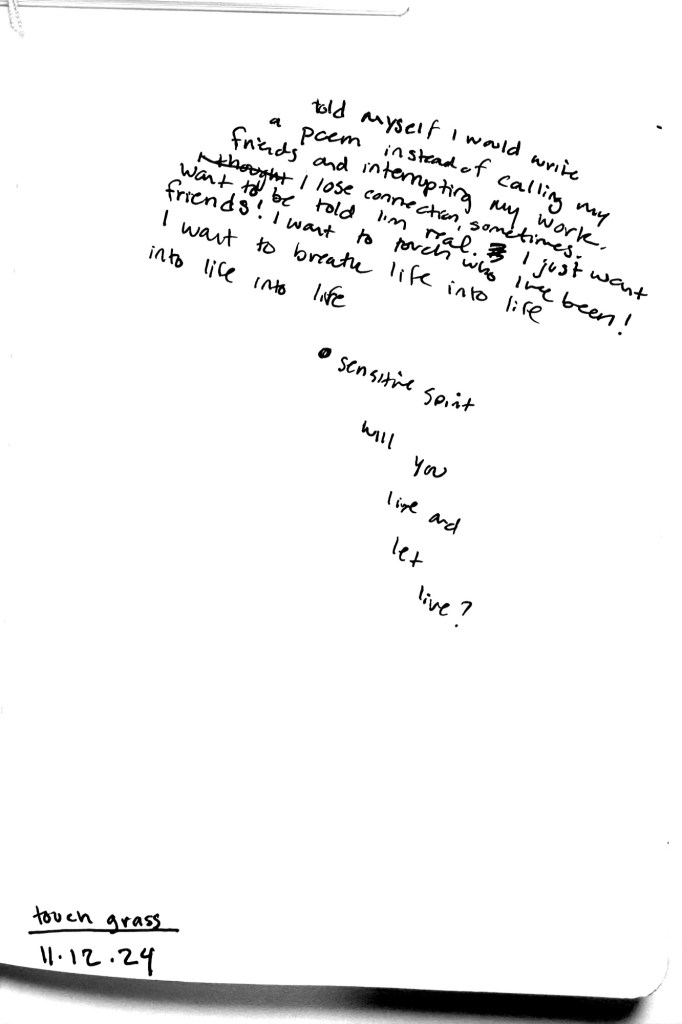 told myself I would write
a poem instead of calling my
friends and interrupting my work.
I thought I lose connection, sometimes.
want to be told I'm real. I just want
friends! I want to touch who I've been!
I want to breathe life into life
into life into life
sensitive spirit
will
you
live and
let
live?
touch grass
11.12.24